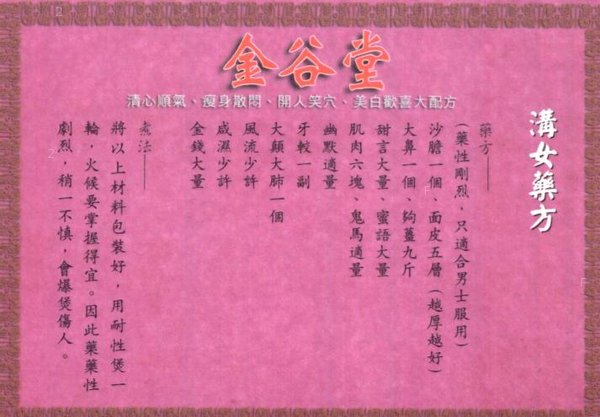 金谷堂
清心順氣、瘦身散悶、開人笑穴、美白歡喜大配方
溝女藥方
藥方——
（藥性剛烈，只適合男士服用）
沙膽一個、面皮五層（越厚越好）
大鼻一個、夠薑九斤
甜言大量、蜜語大量
肌肉六塊、鬼馬適量
幽默適量
牙較一副
大顛大肺一個
風流少許
咸濕少許
金錢大量
煮法——
將以上材料包裝好，用耐性煲一
輪，火候要掌握得宜。因此藥藥性
劇烈，稍一不慎，會爆煲傷人。